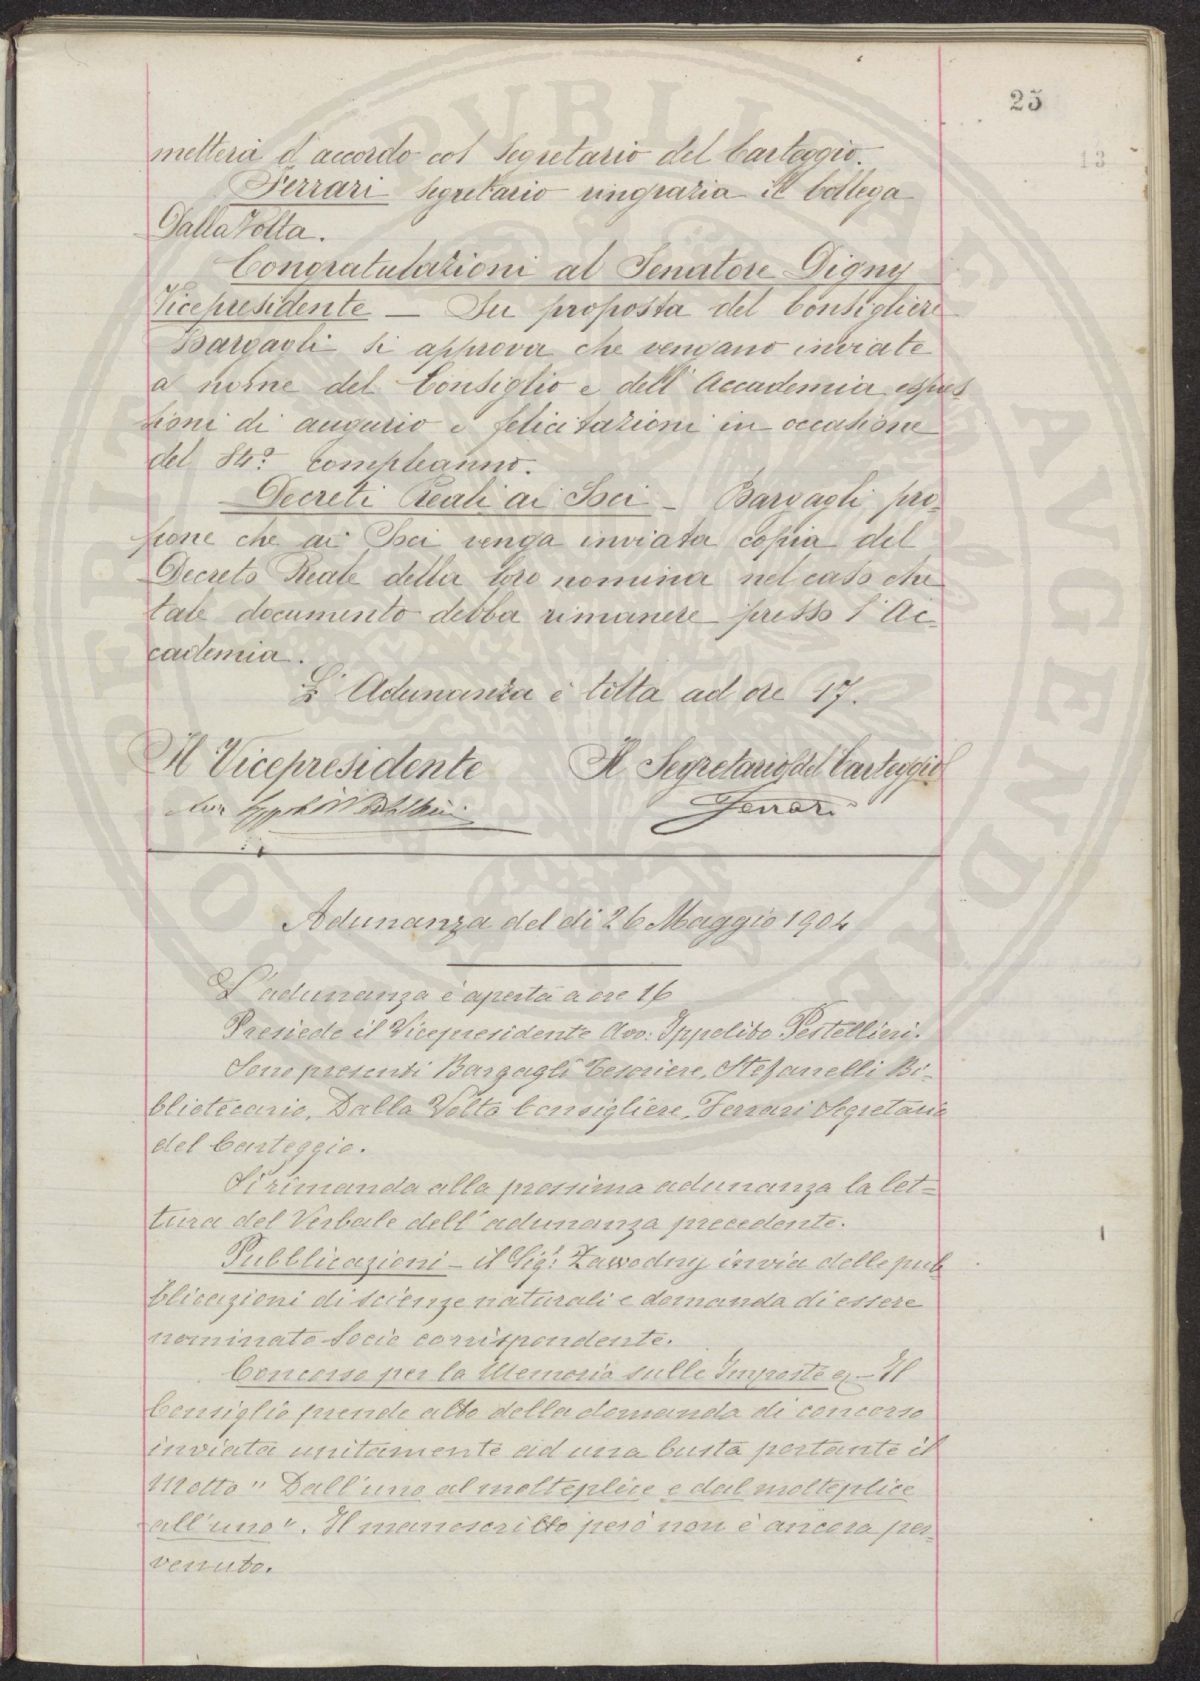 25
13
metterà d'accordo col Segretario del Carteggio.
Ferrari segretario ringrazia il Collega
Dalla Volta.
Congratulazioni al Senatore Digny
Vicepresidente — Su proposta del Consigliere
Bargagli si approva che vengano inviate
a nome del Consiglio e dell'Accademia espres-
sioni di augurio e felicitazioni in occasione
del 84º compleanno.
Decreti Reali ai Soci — Bargagli pro-
pone che ai Soci venga inviata copia del
Decreto Reale della loro nomina nel caso che
tale documento debba rimanere presso l'Ac-
cademia.
L'Adunanza è tolta ad ore 17.
Il Vicepresidente Il Segretario del Carteggio
Ferrari
Adunanza del dì 26 Maggio 1904
L'adunanza è aperta a ore 16
Presiede il Vicepresidente Avv: Ippolito Pestellini.
Sono presenti Bargagli Tesoriere, Stefanelli Bi-
bliotecario, Dalla Volta Consigliere, Ferrari Segretario
del Carteggio.
Si rimanda alla prossima adunanza la let=
tura del Verbale dell'adunanza precedente.
Pubblicazioni — il Sigr. Zawodny invia delle pub
blicazioni di scienze naturali e domanda di essere
nominato Socio corrispondente.
Concorso per la Memoria sulle Imposte — Il
Consiglio prende atto della domanda di concorso
inviata unitamente ad una busta portante il
Motto "Dall'uno al molteplice e dal molteplice
all'uno". Il manoscritto però non è ancora per-
venuto.